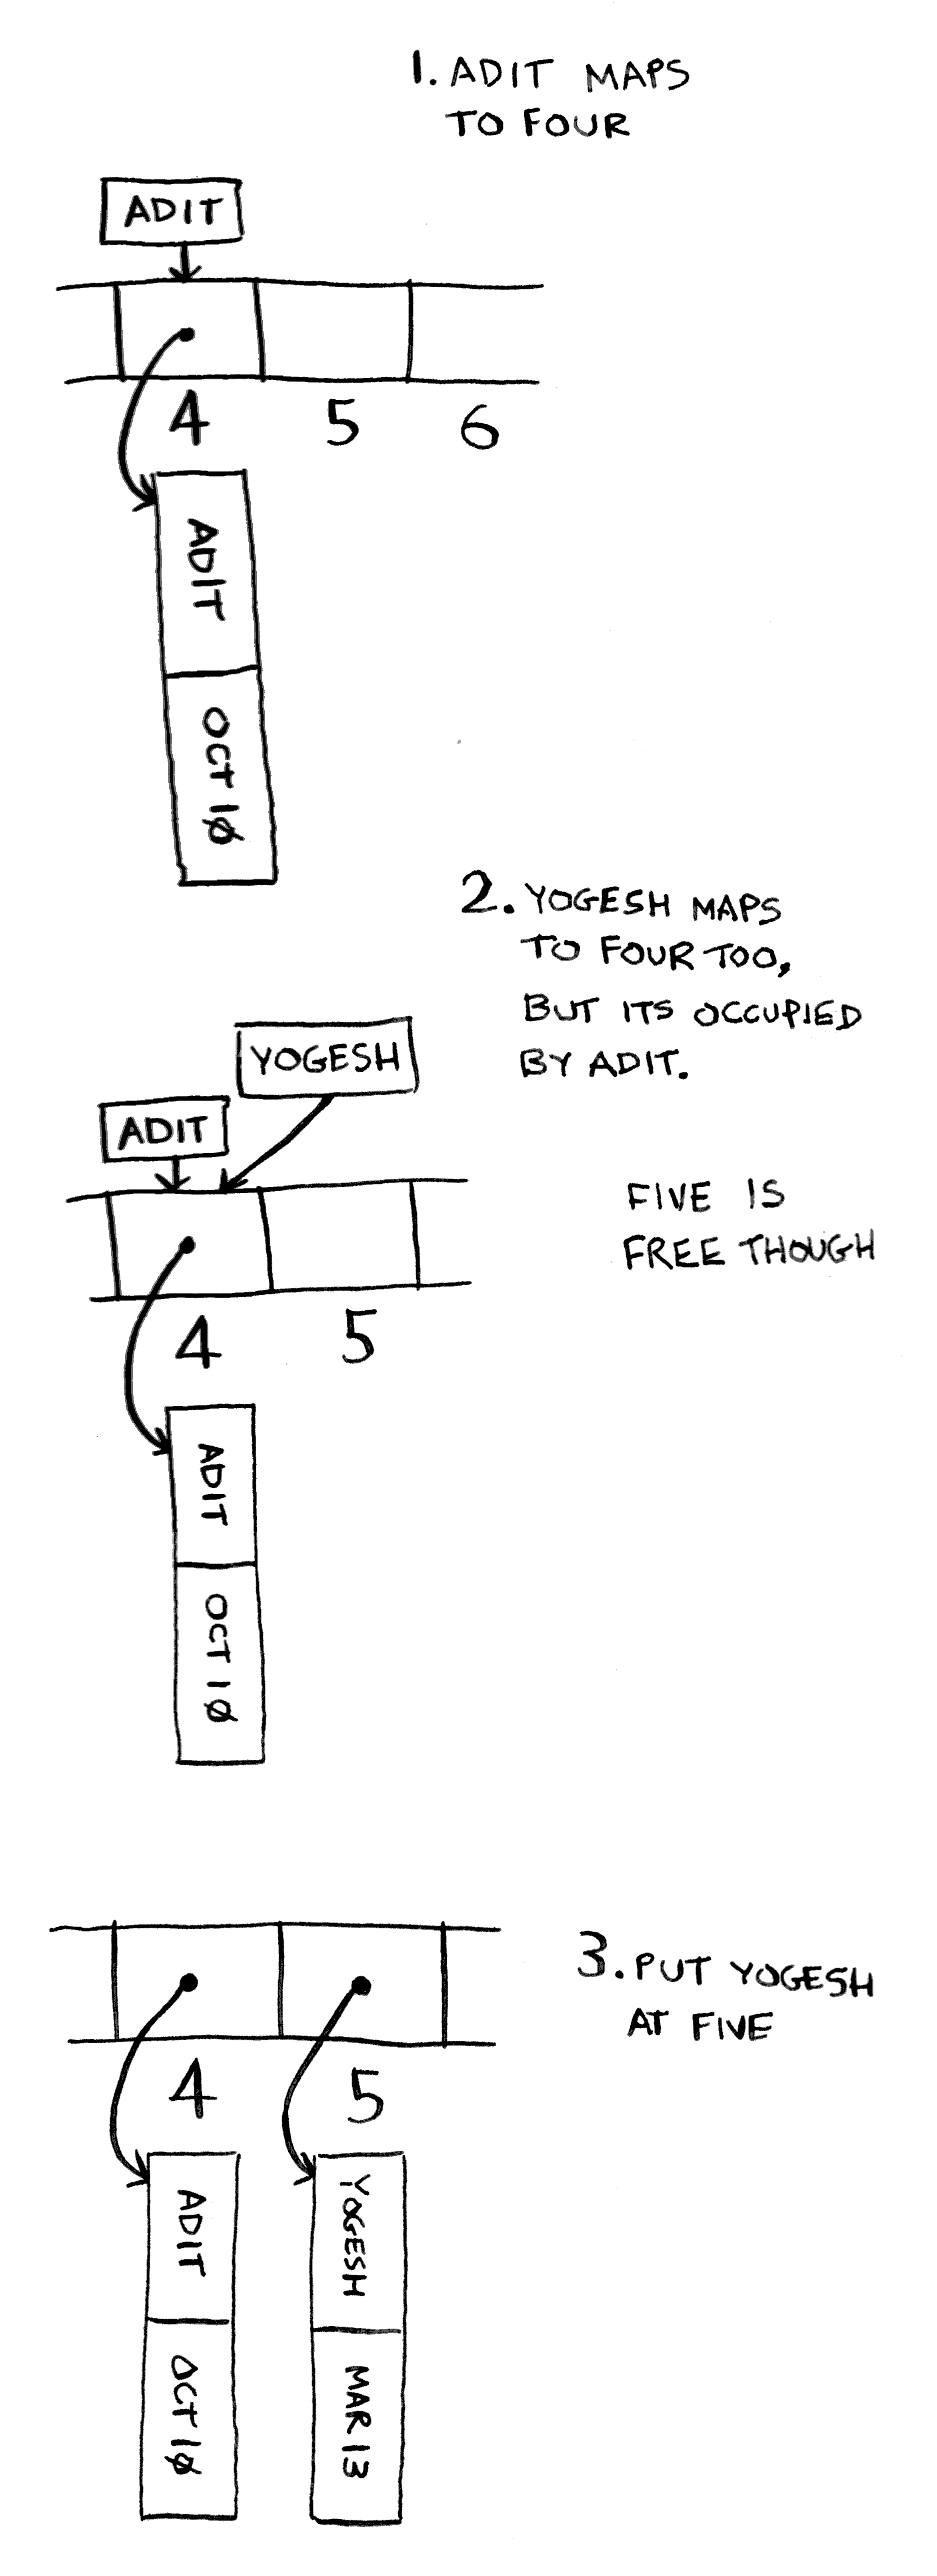 1. ADIT MAPS
TO FOUR
ADIT
4 5 6
ADIT
OCT 10
2. YOGESH MAPS
TO FOUR TOO,
BUT ITS OCCUPIED
BY ADIT.
YOGESH
ADIT
FIVE IS
FREE THOUGH
4 5
ADIT
OCT 10
3. PUT YOGESH
AT FIVE
4 5
ADIT
OCT 10
YOGESH
MAR 13